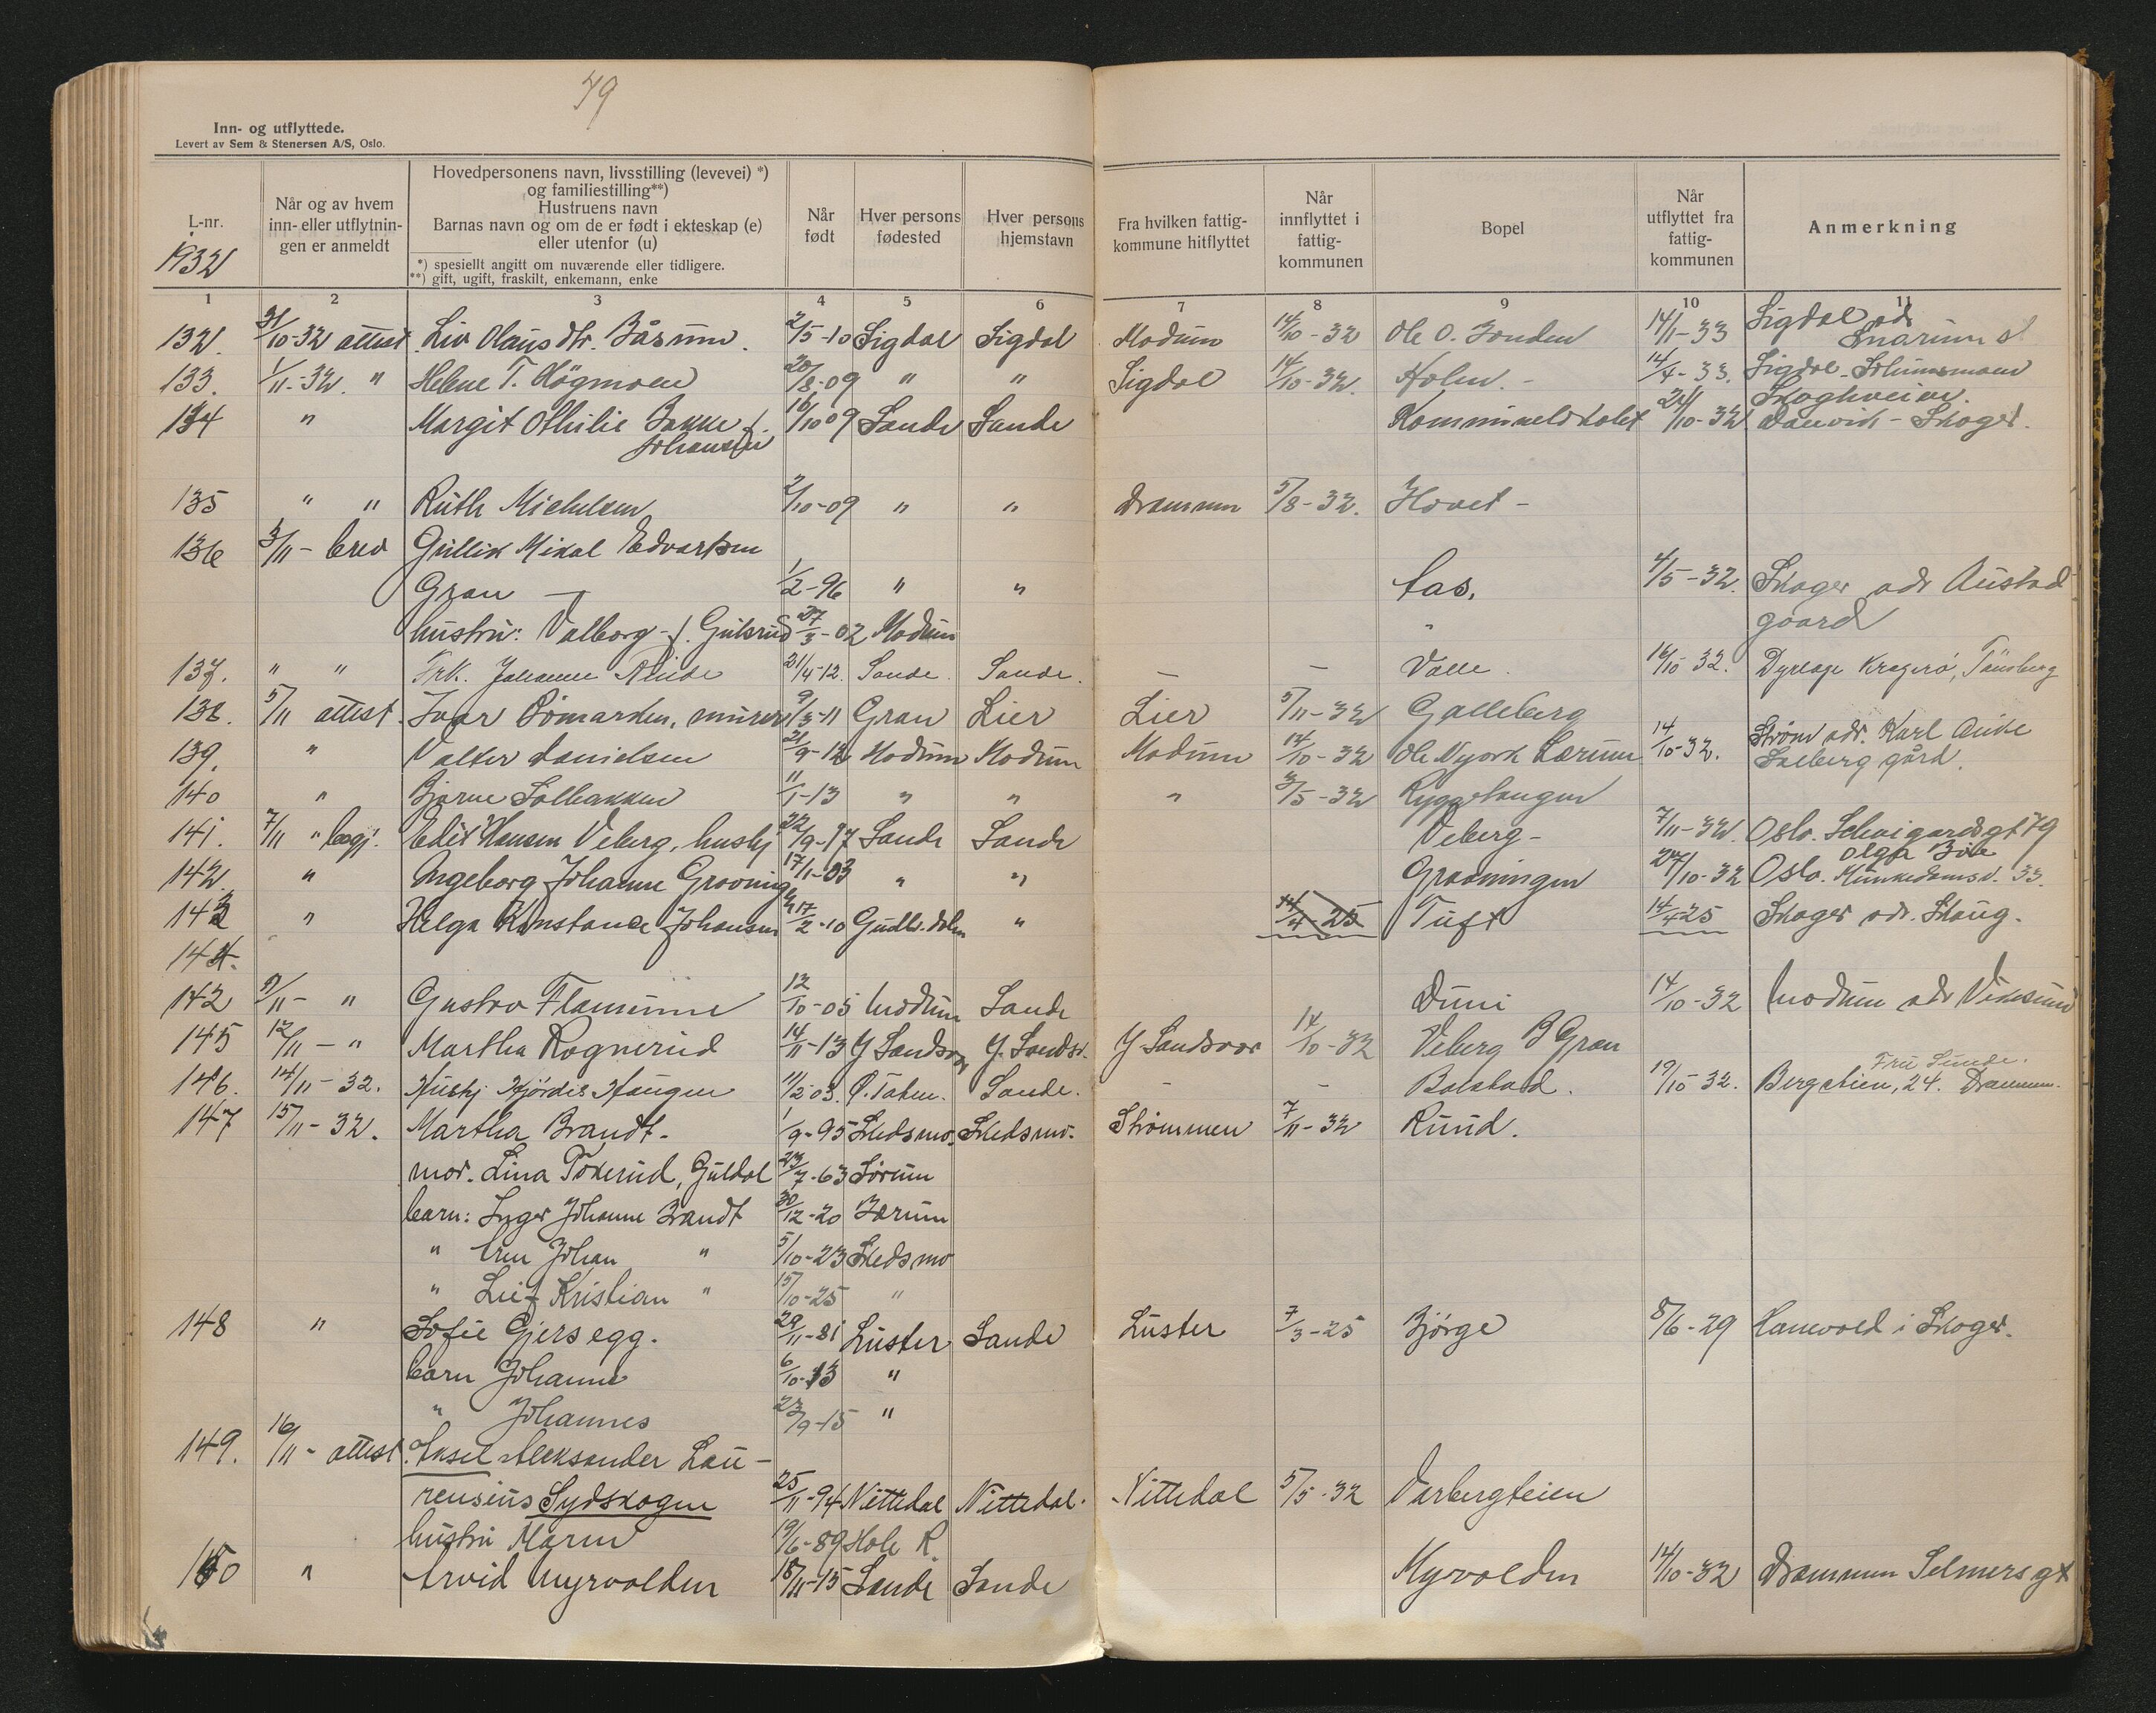 79
Inn- og utflyttede.
Levert av Sem & Stenersen A/S, Oslo.
L-nr.
1932
Når og av hvem inn- eller utflytnin- gen er anmeldt
Hovedpersonens navn, livsstilling (levevei) *)
og familiestilling**)
Hustruens navn
Barnas navn og om de er født i ekteskap (e)
eller utenfor (u)
*) spesiellt angitt om nuværende eller tidligere.
**) gift, ugift, fraskilt, enkemann, enke
Når født
Hver persons fødested
Hver persons hjemstavn
Fra hvilken fattig- kommune hitflyttet
Når innflyttet i fattig- kommunen
Bopel
Når utflyttet fra fattig- kommunen
Anmerkning
1 2 3 4 5 6 7 8 9 10 11
132. 31/10-32 attest Liv Olausdtr. Båsum. 2/5-10 Sigdal Sigdal Modum 14/10-32 Ole O. 14/1-33 Sigdal adr
Snarum st
133. 1/11-32. " Helene T. Högmoen 20/8-09 " " Sigdal 14/10-32. Holm. - 14/4-33. Sigdal
134 " Margit Othilie Bakke f. 16/10 09 Sande Sande Kommunelokalet 24/10-32 Danvik - Skoger.
Johansen
135 " " Ruth Michelsen 2/10-09 " " Drammen 5/8-32. Hovet -
136 3/11- brev Gullik Mikal Edvartsen
Gran - 1/2-96 " " Aas. 4/5-32. Skoger adr Austad
hustru: Valborg - f. Gulsrud 27/3-02 Modum " gaard
137. " " Frk. Johanne 21/4-12. Sande. Sande. - - Valle. 16/10 32. Kragerø, Tønsberg
138. 5/11 attest. Ivar Sömarken, murer 9/3-11 Gran Lier Lier 5/11-32 Galleberg
139. " Valter Danielsen 21/9-12 Modum Modum Modum 14/10-32 Ole Nyork Lærum 14/10-32. Strøm adr. Karl
Solberg gård.
140 " Bjarne Solbakken 11/1-13 " " " 3/5-32 Ryggetangen
141. 7/11 " begj. Edit Hansen Veberg, hushj 22/9-17 Sande Sande Veberg - 7/11-32. Oslo. Schweigaardsgt 79
142. " Ingeborg Johanne Grooningen 17/1-03 " " Grooningen 27/10-32 Oslo. Munkedamsv. 33.
Olga
143 " Helga Konstance Johansen 17/2-10 " 14/4-25 Tuft 14/4-25 Skoger adr. Skaug.
144.
142 9/11- " Gustav Flannum 12/10-05 Modum Sande Duni 14/10-32 Modum adr Vikesund
145 12/11- " Martha Rognerud 14/11-13 Y Sandsvær Y. Sandsv. Y. Sandsvær 14/10-32 Veberg B Gran
146. 14/11-32. Hushj Hjördis Haugen 11/2 03. Sande. - - Bolstad. 19/10-32. Bergstien, 24. Drammen.
Fru Lunde.
147 15/11-32. Martha Brandt. 1/9-95 Skedsmo. Skedsmo. Strømmen 7/11-32 Ruud.
mor. Lina Tokerud, Guldal 23/7-63 Sörum
barn: Inger Johanne Brandt 30/12-20 Bærum
" Arne Johan " 5/10-23 Skedsmo
" Leif Kristian " 15/10-25 "
148 " Sofie Gjersegg. 29/11-81 Luster Sande Luster 7/3-25 Bjørge 8/6-29 Hanevold i Skoger.
barn Johanne 6/10-13 "
" Johannes 23/9-15 "
149. 16/11- attest. Aksel Aleksander Lau-
rensius Sydskogen 25/11-94 Nittedal Nittedal. Nittedal 5/5-32 Varbergteien
hustru Maren 19/6-89 Hole R.
150 " Arvid Myrvolden 18/11-15 Sande Sande Myrvolden 14/10-32 Drammen Selmers gt